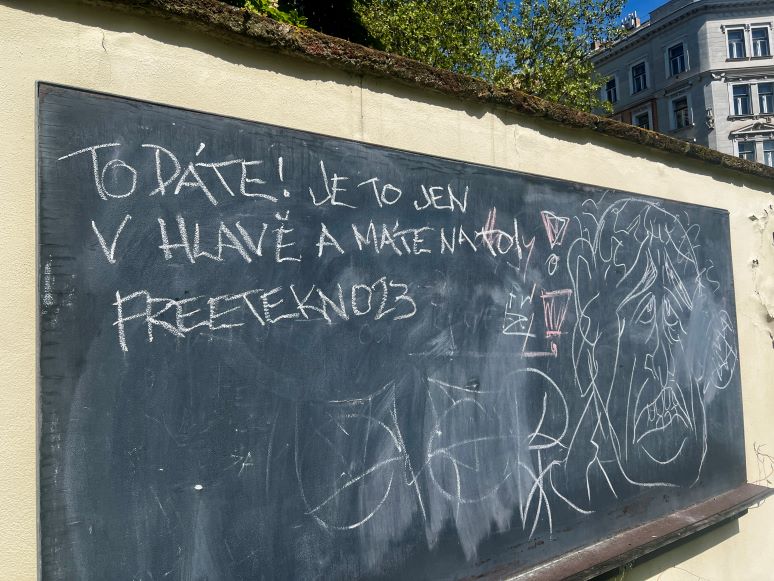 TO DÁTE! JE TO JEN
V HLAVĚ A MÁTE NA
FREETEKNO23